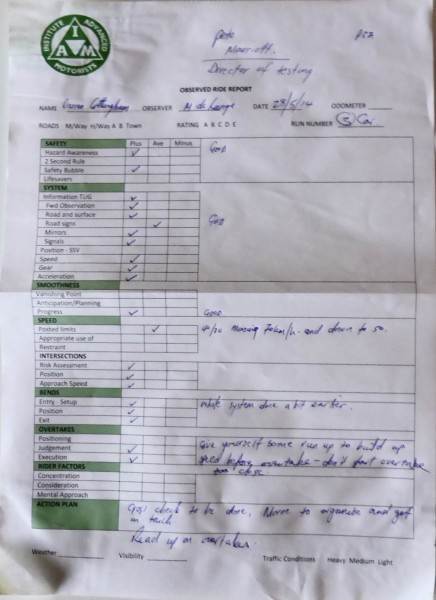 INSTITUTE ADVANCED MOTORISTS
IAM
Pete
Marriott.
Director of testing
OBSERVED RIDE REPORT
NAME Cottingham OBSERVER M de DATE 28/5/14 ODOMETER
ROADS M/Way H/Way A B Town RATING A B C D E RUN NUMBER 3 Car
SAFETY Plus Ave Minus
Hazard Awareness Good
2 Second Rule
Safety Bubble
Lifesavers
SYSTEM
Information TUG
Fwd Observation
Road and surface Good
Road signs
Mirrors
Signals
Position - SSV
Speed
Gear
Acceleration
SMOOTHNESS
Vanishing Point
Anticipation/Planning
Progress Good
SPEED
Posted limits missing 70km/h and down to 50.
Appropriate use of
Restraint
INTERSECTIONS
Risk Assessment
Position
Approach Speed
BENDS
Entry - Setup whole system done a bit earlier.
Position
Exit
OVERTAKES
Positioning Give yourself some run up to build up
Judgement speed before overtake - don't
Execution too close.
RIDER FACTORS
Concentration
Consideration
Mental Approach
ACTION PLAN check to be done, Norm to organise and get
in touch
Read up on overtakes.
Weather Visibility Traffic Conditions Heavy Medium Light